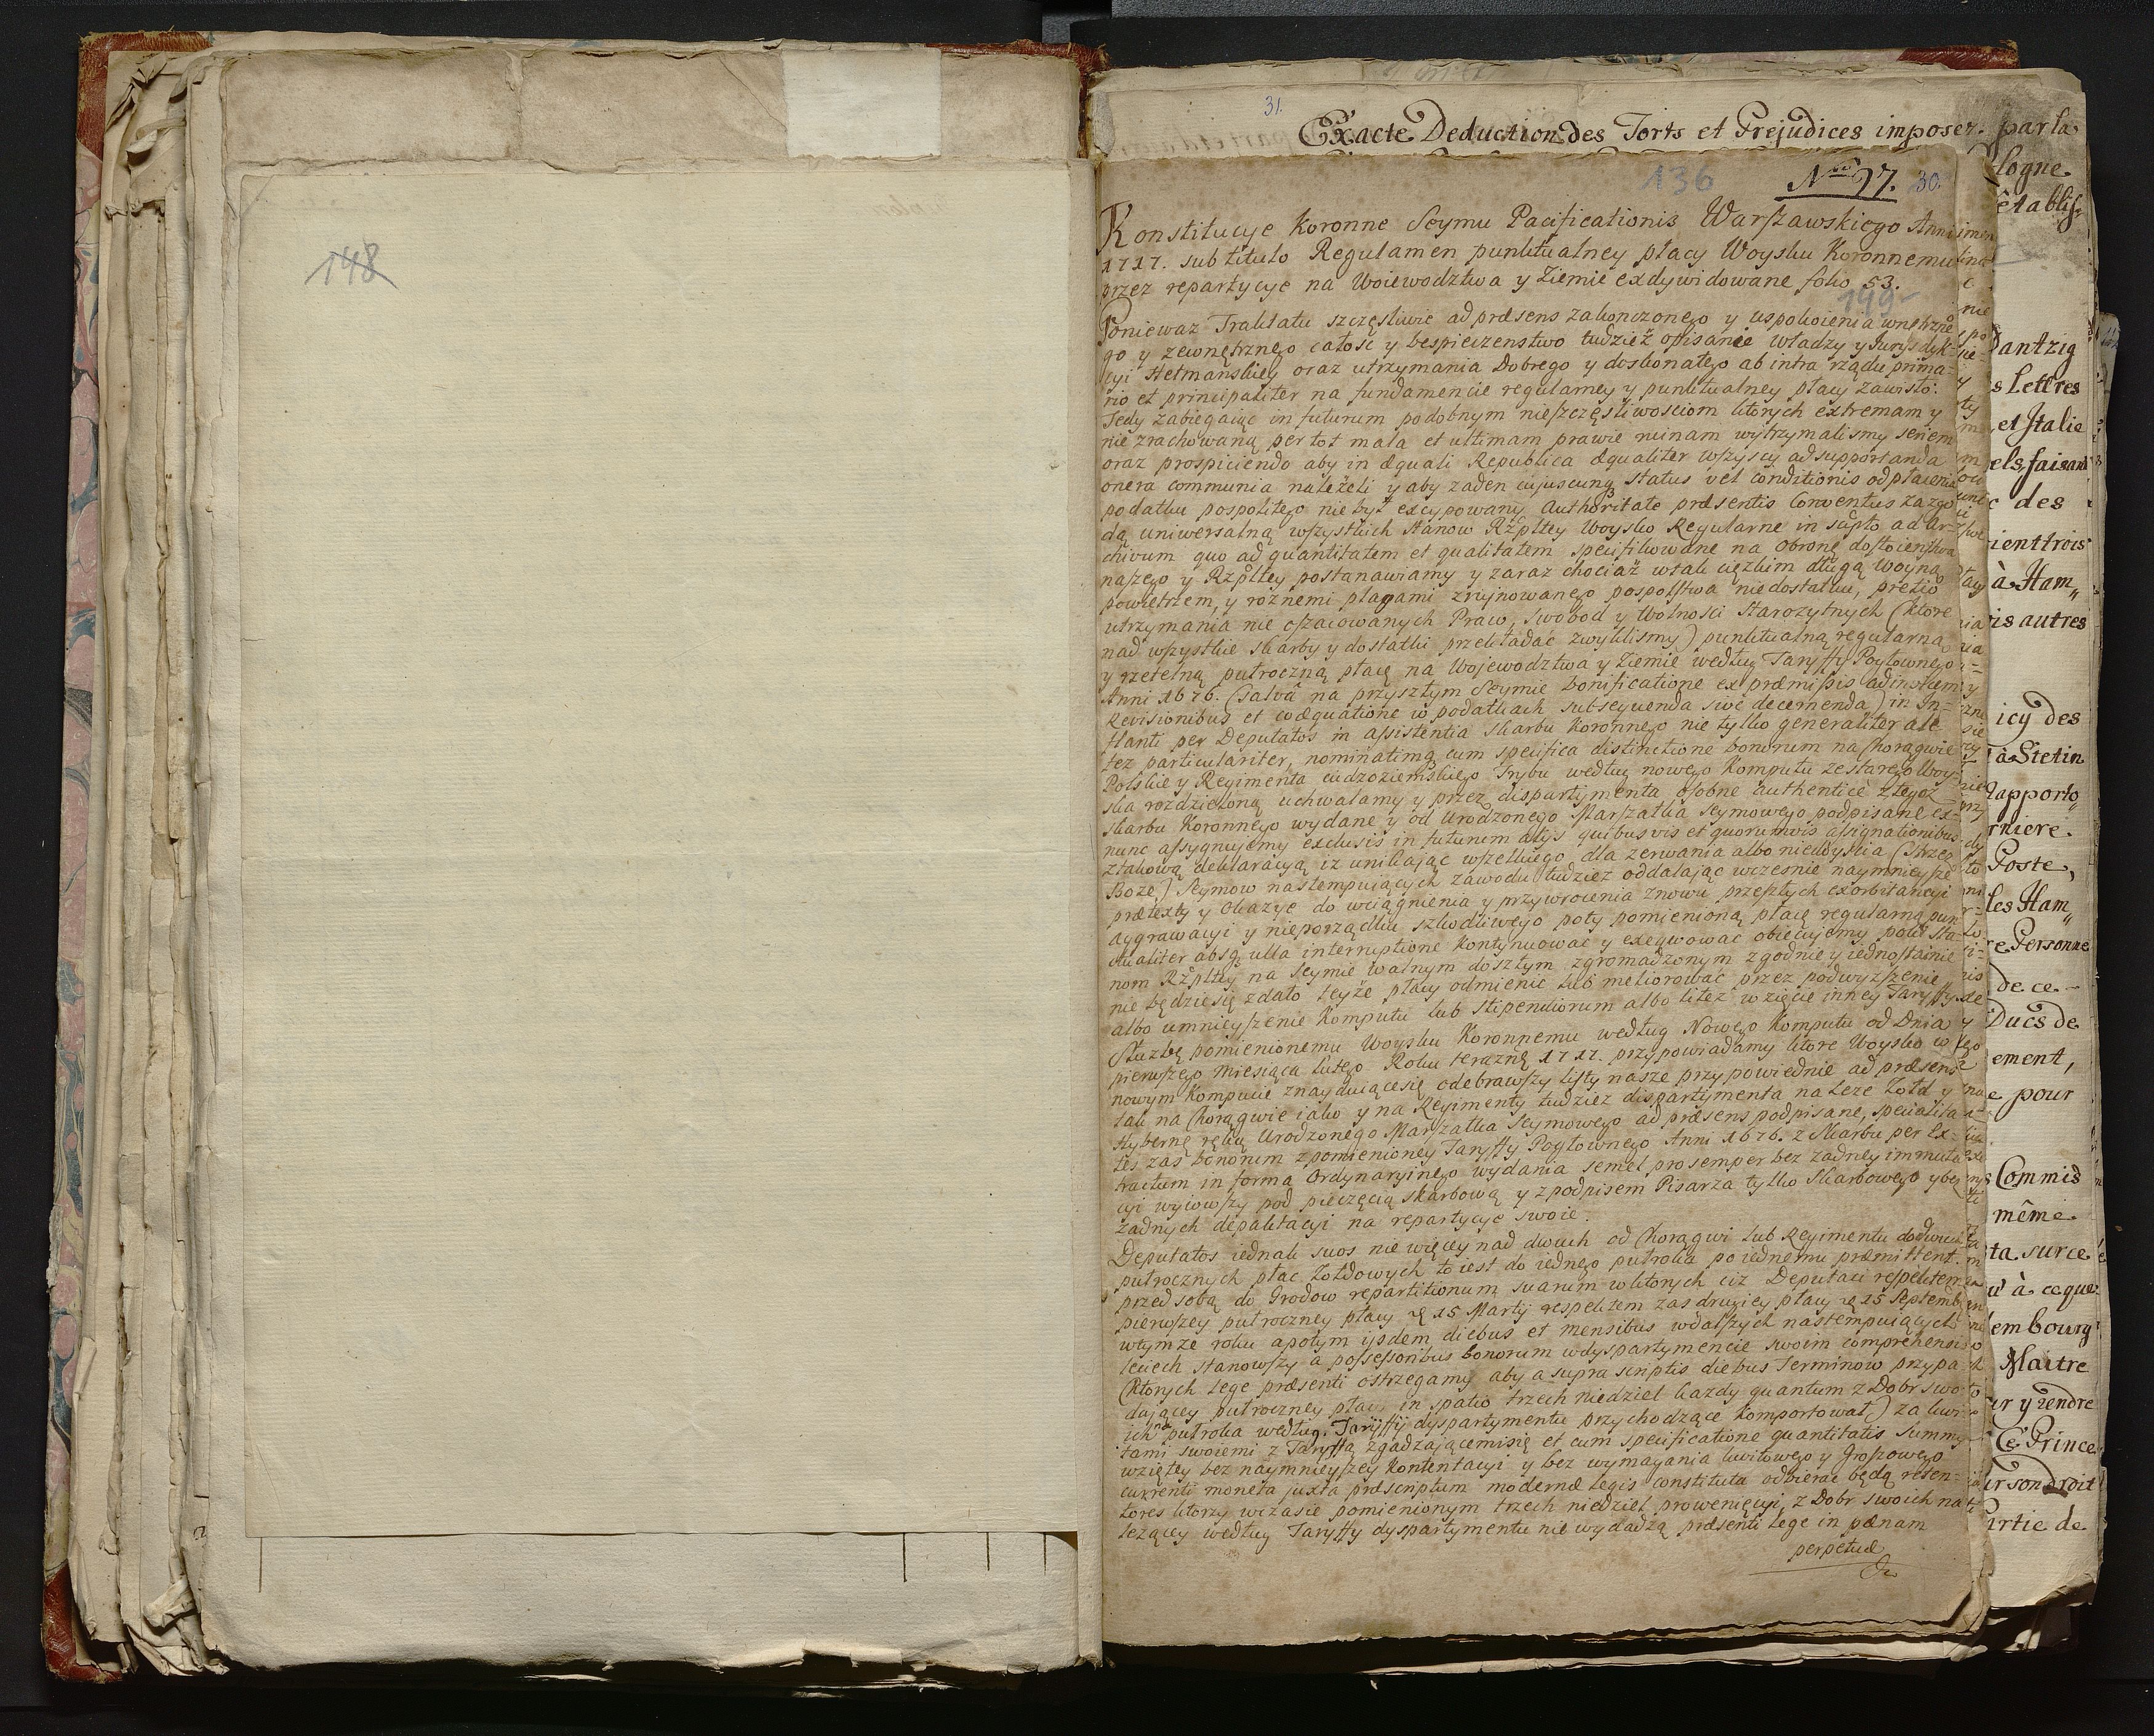 148
31.
Exacte Deduction des Torts et Prejudices imposez. par la
logne
établis=
136
Nro 97. 30.
Konstitucye Koronne Seymu Pacificationis Warszawskiego Anni
1717. sub titulo Regulamen punktualney płacy Woysku Koronnemu
przez repartycye na Woiewodztwa y Ziemie exdywidowane folio 53.
149
Poniewaz Traktatu szczęsliwie ad præsens zakonczonego y uspokoienia wnętrzne
go y zewnętrznego całosć y bespieczenstwo tudzież opisanie władzy y Jurysdyk=
cyi Hetmanskiey oraz utrzymania Dobrego y doskonałego ab intra rządu prima=
rio et principaliter na fundamencie regularney y punktualney płacy zawisło:
Tedy zabiegaiąc in futurum podobnym nieszczęsliwosciom ktorych extremam y
nie zrachowaną per tot mala et ultimam prawie ruinam wytrzymalismy seriem
oraz prospiciendo aby in æquali Republica æqualiter wszyscy ad supportanda
onera communia należeli y aby zaden cujuscunq status vel conditionis od płacenia
podatku pospolitego nie był excypowany Authoritate præsentis Conventus za zgo
dą uniwersalną wszystkich Stanow Rzpltey Woysko Regularne in scripto ad Ar=
chivum quo ad quantitatem et qualitatem specifikowane na obronę dostoienstwa
naszego y Rzpltey postanawiamy y zaraz chociaż w tak cięzkim długą woyną
powietrzem, y roznemi plagami zruynowanego pospolstwa niedostatku, pretio
utrzymania nie oszacowanych Praw, Swobod y Wolnosci Starozytnych (ktore
nad wszystkie skarby y dostatki przekładac zwyklismy) punktualną regularną
y rzetelną pułroczną płacę na Wojewodztwa y Ziemie według Taryffy Pogłownego
Anni 1676. (Salvâ na przyszłym Seymie bonificatione ex præmissis ad instar
Revisionibus et coæquatione w podatkach subsequenda sive decernenda) in In=
stanti per Deputatos in assistentia Skarbu Koronnego nie tylko generaliter ale
tez particulariter, nominatimq cum specifica distinctione bonorum na Chorągwie
Polskie y Regimenta cudzoziemskiego Trybu według nowego Komputu ze starego Woy=
ska rozdzieloną uchwalamy y przez dispartymenta osobne authenticè z tegoż
Skarbu Koronnego wydane y od Urodzonego Marszałka Seymowego podpisane ex=
nunc assygnujemy exclusis in futurum alijs quibusvis et quorumvis assignationibus
z takową deklaracyą iz unikaiąc wszelkiego dla zerwania albo niedoyscia (strzez
Boze) Seymow nastempuiących zawodu tudziez oddalaiąc wczesnie naymnieysze
prætexty y Okazye do wciągnienia y przywrocenia znowu przeszłych exorbitancyi
aggrawacyi y nieporządku szkodliwego poty pomienioną płacę regularną pun
ctualiter absq ulla interruptione kontynuować y exeqwować obiecujemy poki Sta=
nom Rzpltey na Seymie walnym doszłym zgromadzonym zgodnie y iednostainie
nie będzie się zdało teyże płacy odmienic lub meliorować przez podwyzszenie
albo umnieyszenie Komputu lub Stipendiorum albo litez wzięcie inney Taryffy
Służbę pomienionemu Woysku Koronnemu według Nowego Komputu od Dnia
pierwszego miesiąca Lutego Roku terazng 1717. przypowiadamy ktore Woysko w
nowym Komputie znayduiącesię odebrawszy listy nasze przypowiednie ad præsens
tak na Chorągwie iako y na Regimenty tudziez dispartymenta na Leze Zołd y
Hybernę ręką Urodzonego Marszałka Seymowego ad præsens podpisane, specialita
tes zas bonorum z pomienioney Taryffy Pogłownego Anni 1676. z Skarbu per Ex=
tractum in forma Ordynaryinego wydania semel pro semper bez zadney immuta
cyi wyiowszy pod pieczęcią skarbową y z podpisem Pisarza tylko Skarbowego y bez
zadnych depaktacyi na repartycye swoie.
Deputatos iednak suos nie więcey nad dwuch od Chorągwi lub Regimentu do dwuch
pułrocznych płac Zołdowych to iest do iednego pułrocza po iednemu præmittent.
przed sobą do Grodow repartitionum suarum w ktorych ciz Deputaci respektem
pierwszey pułroczney płacy 15 Martij respektem zas drugiey płacy 15 Septemb
w tymze roku a potym ijsdem diebus et mensibus w dalszych nastempuiących
leciech stanowszy a possessoribus bonorum w dyspartymencie swoim comprehensis
(ktorych lege præsenti ostrzegamy aby a supra scriptis diebus Terminow przypa
daiącey pułroczney płacy in spatio trzech niedziel kazdy quantum z Dobr swo
ich na pułrocza według Taryffy dyspartymentu przychodzące komportował) za kwi
tami swoiemi z Taryffą zgadzaiącemisię et cum specificatione quantitatis summy
wziętey bez naymnieyszey Kontentacyi y bez wymagania kwitowego y Groszowego
currenti moneta juxta præscriptum modernæ legis constituta odbierac będą reten=
tores ktorzy w czasie pomienionym trzech niedziel prowenięcyi z Dobr swoich na
lezącey według Taryffy dyspartymentu nie wydadzą præsenti lege in pænam
perpetuæ
Dantzig
s Lettres
et Italie
els, faisant
c des
ient trois
à Ham„
is autres
icy des
à Stetin
Rapporto„
rniere.
Poste,
les Ham„
re Personne
de ce
Ducs de
ement,
e pour
s Commis
même
ta sur ce
u à ce que
embourg
Maitre
er y rendre
Ce Prince
ur son droit
artie de